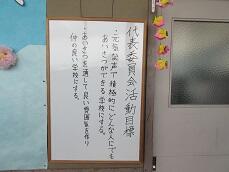 代表委員会活動目標
・元気な声で積極的にどんな人にでも
あいさつができる学校にする。
・あいさつを通して良い雰囲気を作り
仲の良い学校にする。